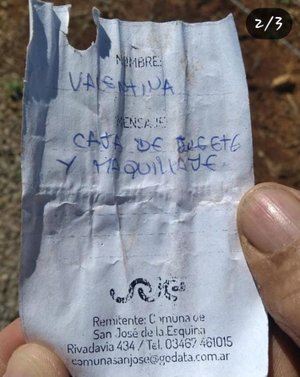 2/3
NOMBRE:
VALENTINA
MENSAJE:
CAJA DE
Y MAQUILLAJE
Remitente: Comuna de
San José de la Esquina
Rivadavia 434 / Tel. 03467 461015
comunasanjose@godata.com.ar